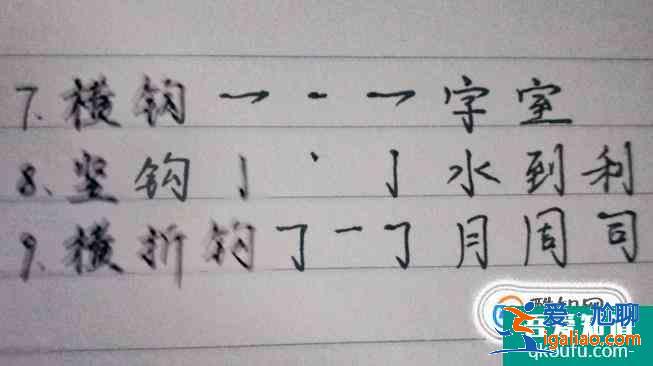 7. 横钩 ㇖ 一 ㇖ 字 室
8. 竖钩 亅 丶 亅 水 到 利
9. 横折钩 ㇆ 一 ㇆ 月 周 司
爱·尬聊
igaliao.com
qksufu.com